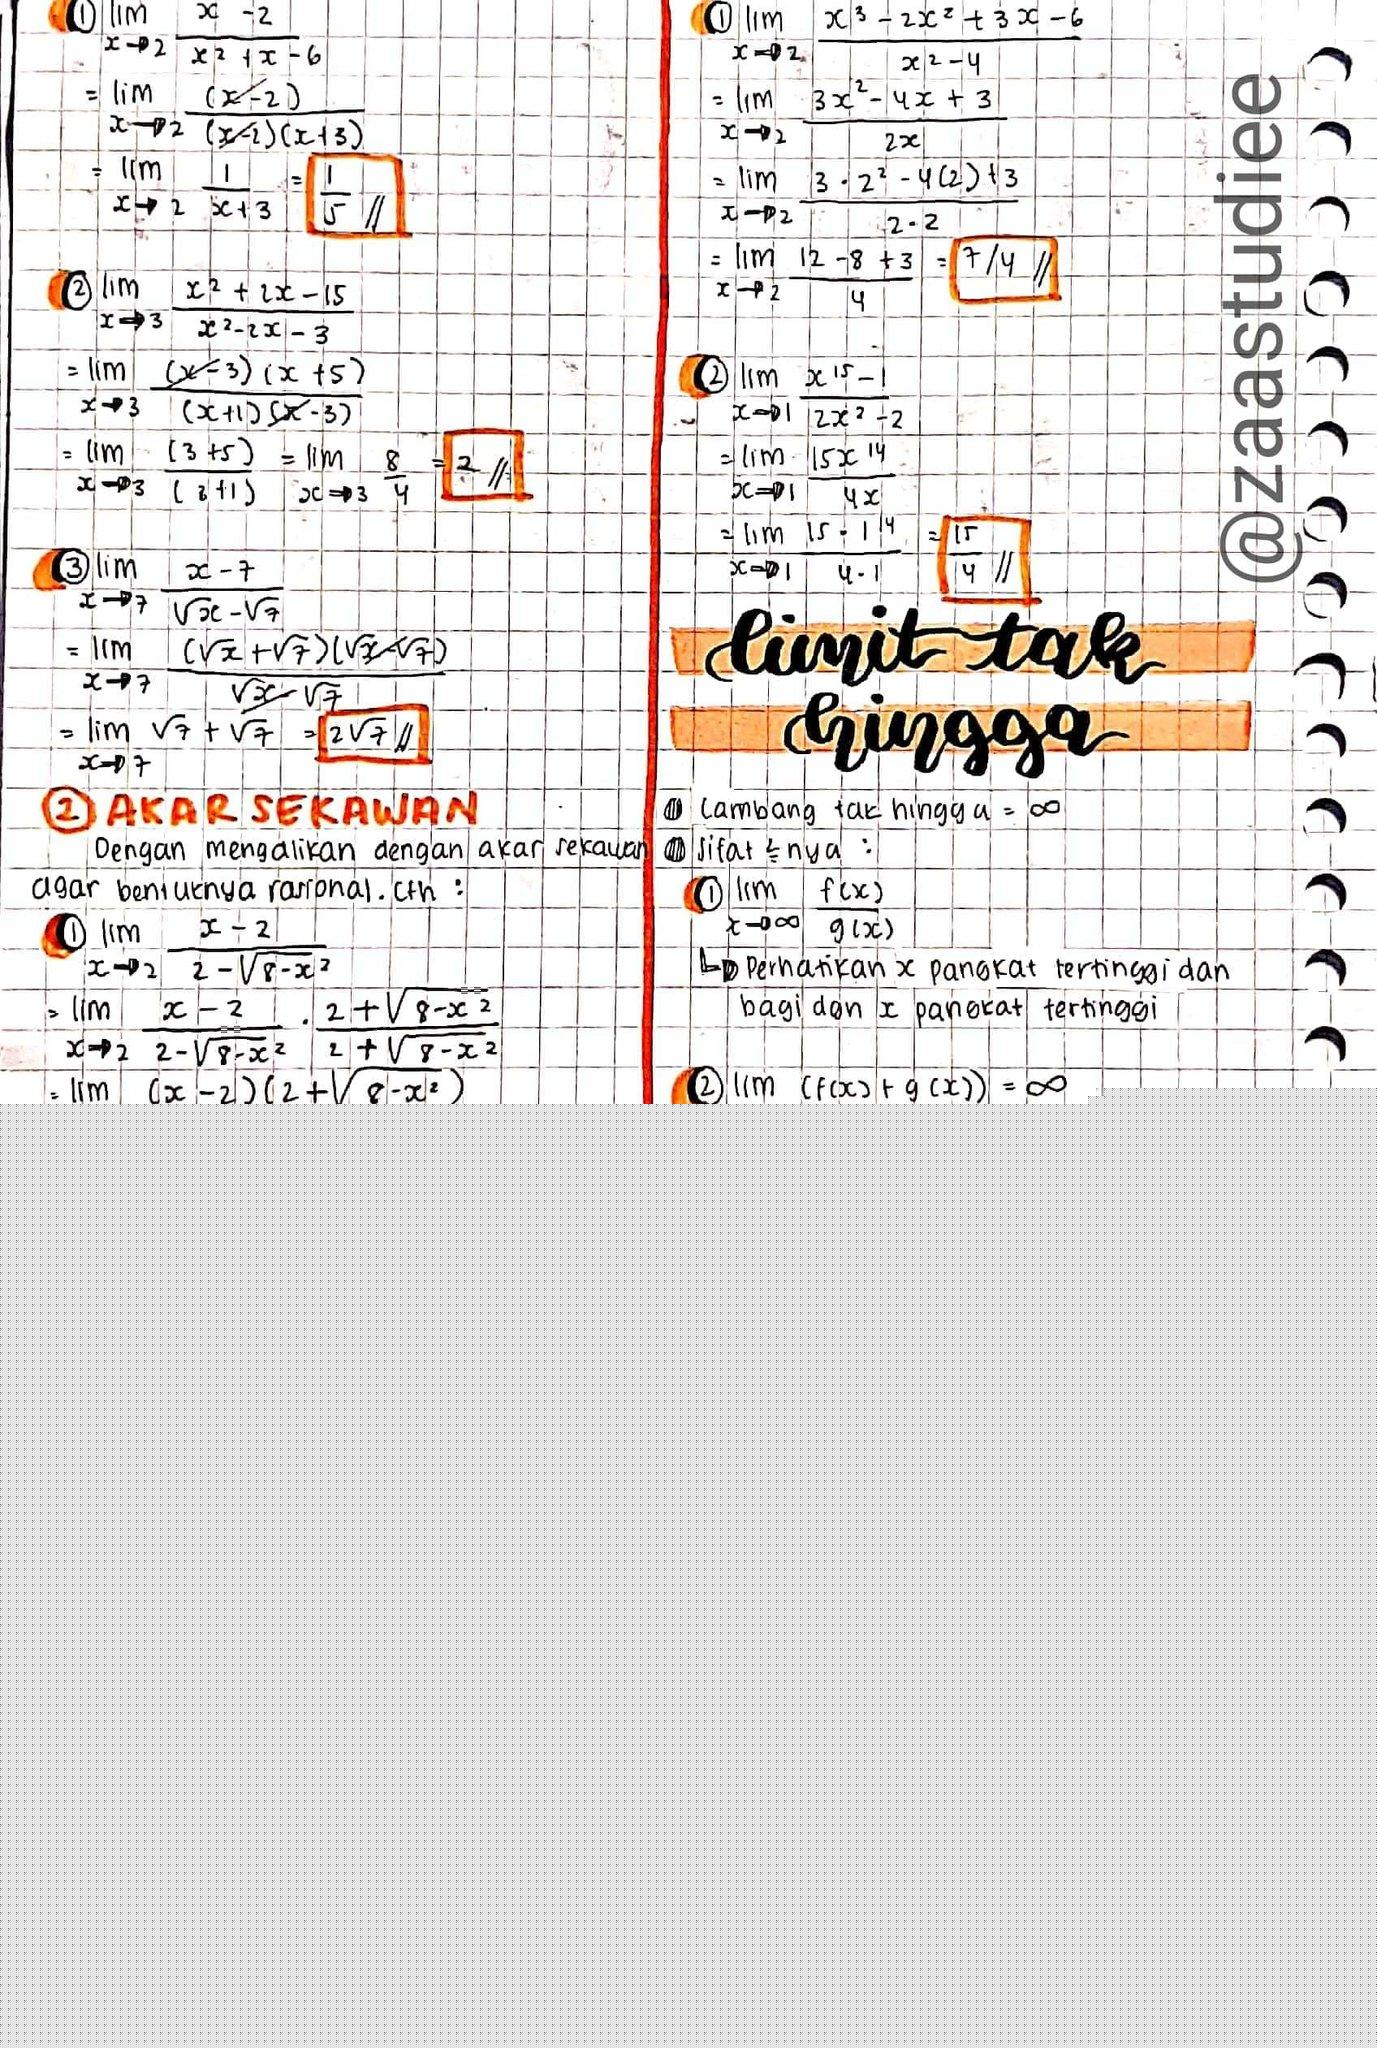 ① lim x -2
x→2 x² + x -6
= lim (x-2)
x→2 (x-2)(x+3)
= lim 1 = 1
x→2 x+3 5 //
② lim x² + 2x - 15
x→3 x²-2x - 3
= lim (x-3) (x +5)
x→3 (x+1) (x-3)
= lim (3 +5) = lim 8 = 2 //
x→3 (3+1) x→3 4
③ lim x - 7
x→7 √x - √7
= lim (√x + √7)(√x-√7)
x→7 √x - √7
= lim √7 + √7 = 2√7 //
x→7
② AKAR SEKAWAN
Dengan mengalikan dengan akar sekawan
agar bentuknya rasional. Cth :
① lim x - 2
x→2 2 - √8-x²
= lim x - 2 . 2 + √8-x²
x→2 2-√8-x² 2 + √8-x²
= lim (x-2)(2+√8-x²)
① lim x³ - 2x² + 3x - 6
x→2 x² - 4
= lim 3x² - 4x + 3
x→2 2x
= lim 3 · 2² - 4(2) + 3
x→2 2·2
= lim 12 -8 +3 = 7/4 //
x→2 4
② lim x¹⁵ - 1
x→1 2x² - 2
= lim 15x¹⁴
x→1 4x
= lim 15 · 1¹⁴ = 15
x→1 4·1 4 //
limit tak
hingga
Lambang tak hingga = ∞
Sifat ²nya :
① lim f(x)
x→∞ g(x)
↳ Perhatikan x pangkat tertinggi dan
bagi dgn x pangkat tertinggi
② lim (f(x) + g(x)) = ∞
@zaastudiee